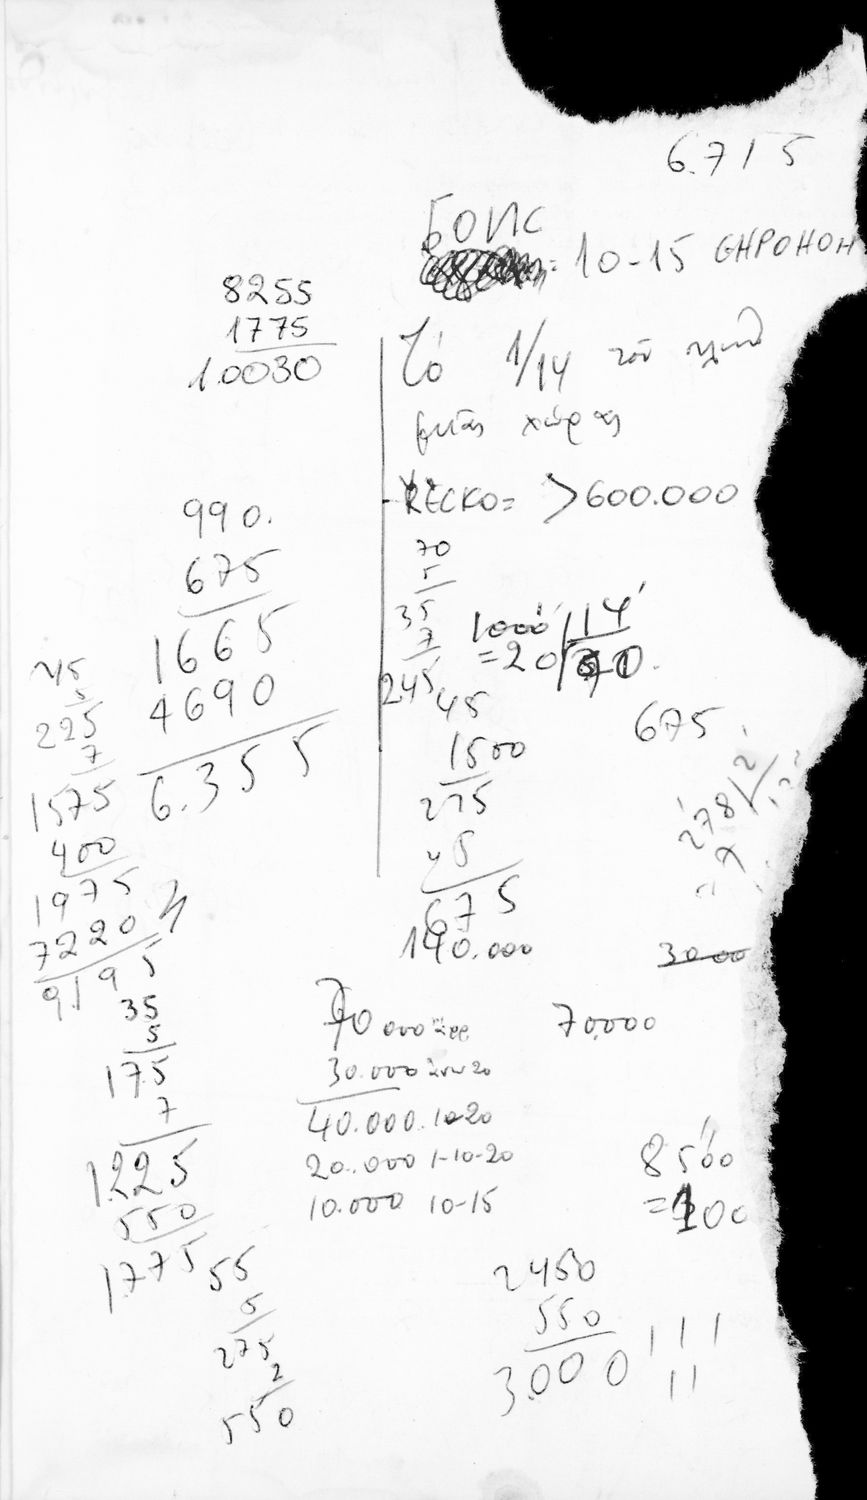 6.715
БОИС
= 10-15
8255
1775
1.0030
Τό 1/14 τοῦ
μιᾶς χώρας
RECKO= >600.000
990.
675
1665
4690
6.355
70
5
35
7
245
1000 14
=20
45
5
225
7
1575
400
1975
7220
9195
45
1500
225
45
675
675
278 2
140.000
3000
35
5
175
7
1225
550
1775
70 000
70.000
30.000 ἄνω 20
40.000. 10-20
20.000 1-10-20
10.000 10-15
8500
=100
55
5
275
2
550
2450
550
3000